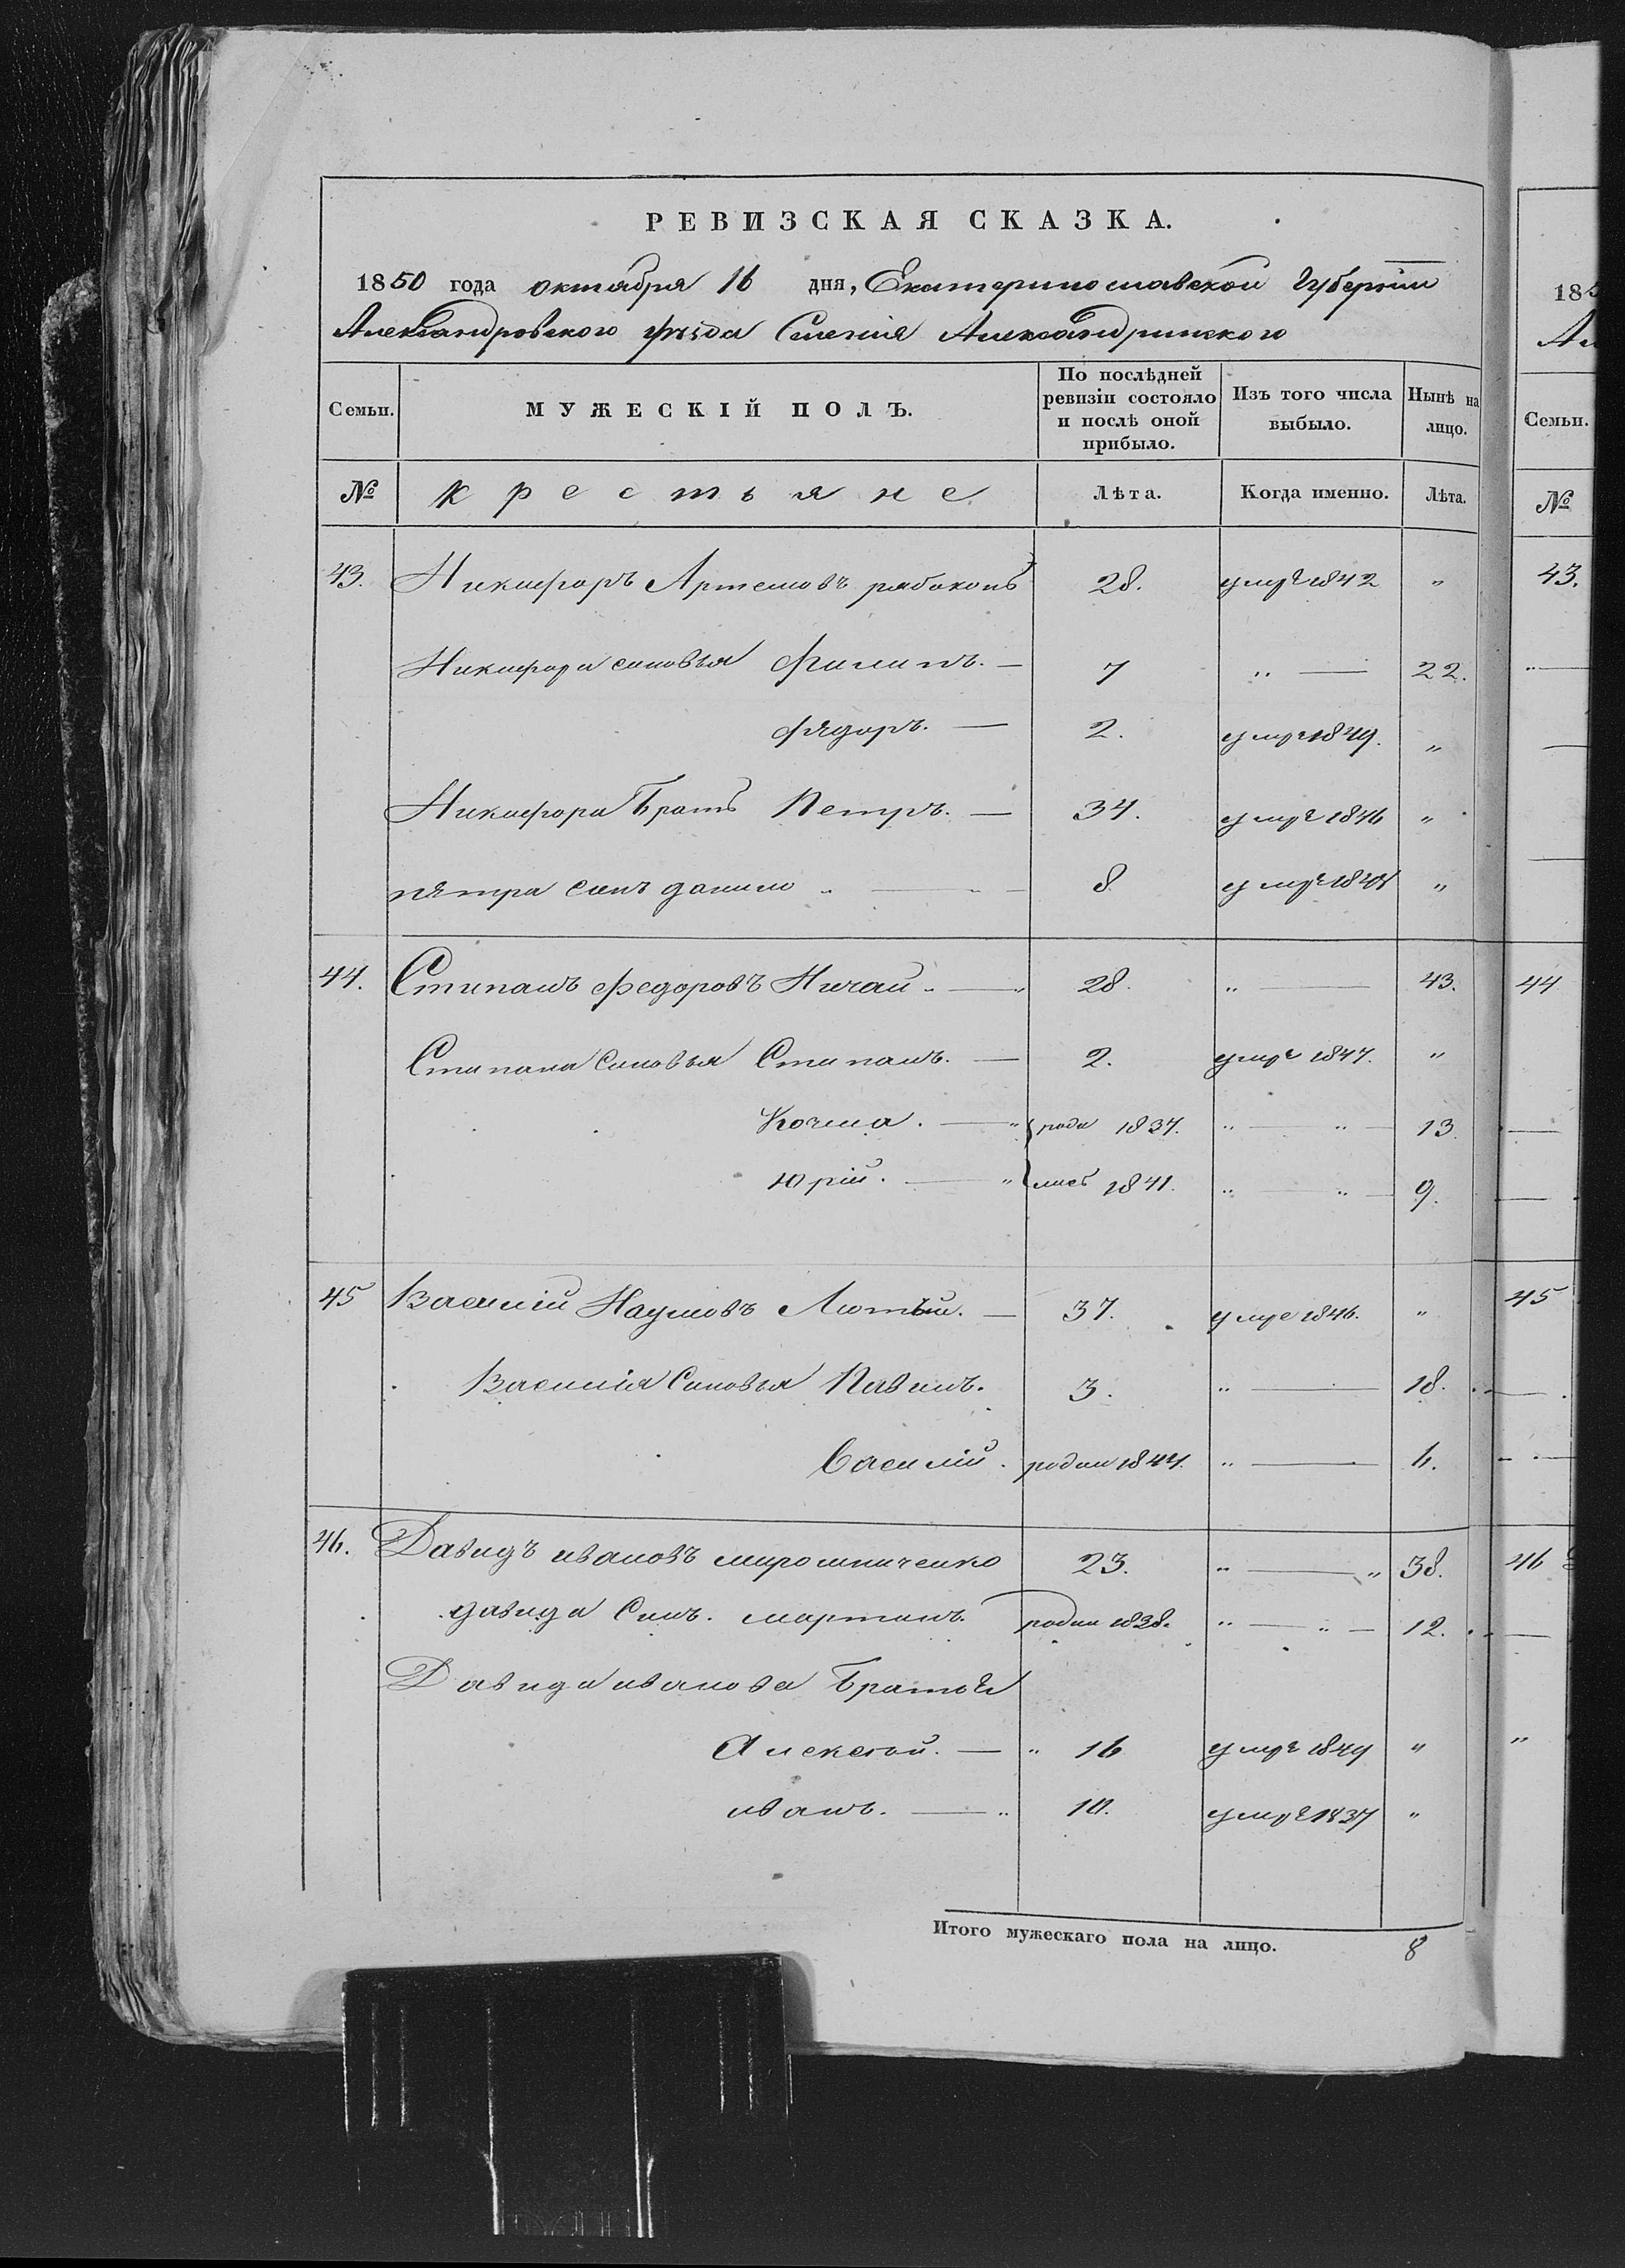 РЕВИЗСКАЯ СКАЗКА.
1850 года октября 16 дня, Екатеринославской Губернии
Александровского уезда Селения Александринского
Семьи. МУЖЕСКІЙ ПОЛЪ. По послѣдней ревизіи состояло и послѣ оной прибыло. Изъ того числа выбыло. Нынѣ на лицо.
№ крестьяне Лѣта. Когда именно. Лѣта.
43. Никифоръ Артемовъ рабоконь 28. умре 1842 "
Никифора синовья Филипъ. — 7 " — 22.
Фядоръ. — 2. умре 1849. "
Никифора Братъ Петръ. — 34. умре 1846 "
пятра синъ данило " — 8 умре "
44. Стипанъ Федоровъ Ничай " — " 28. " — 43.
Стипана Синовья Стипанъ. — 2. умре 1847. "
Козма. — " роди 1837. " — " — 13
Юрій. — " лись 1841. " — " — 9.
45 Василій Наумовъ Лютый. — 37. умре 1846. "
Василія Синовья Павилъ. 3. " — 18.
Василій. родил 1844. " — 6.
46. Давидъ ивановъ мирошниченко 23. " — " 38.
давида Синъ. мартинъ. родил 1838. " — " — 12.
Давида иванова Братья
Алексѣй. — " 16 умре 1849 "
иванъ. — " 10. умре 1837 "
Итого мужескаго пола на лицо. 8
185
Ал
Семьи.
№
43.
44
45
46